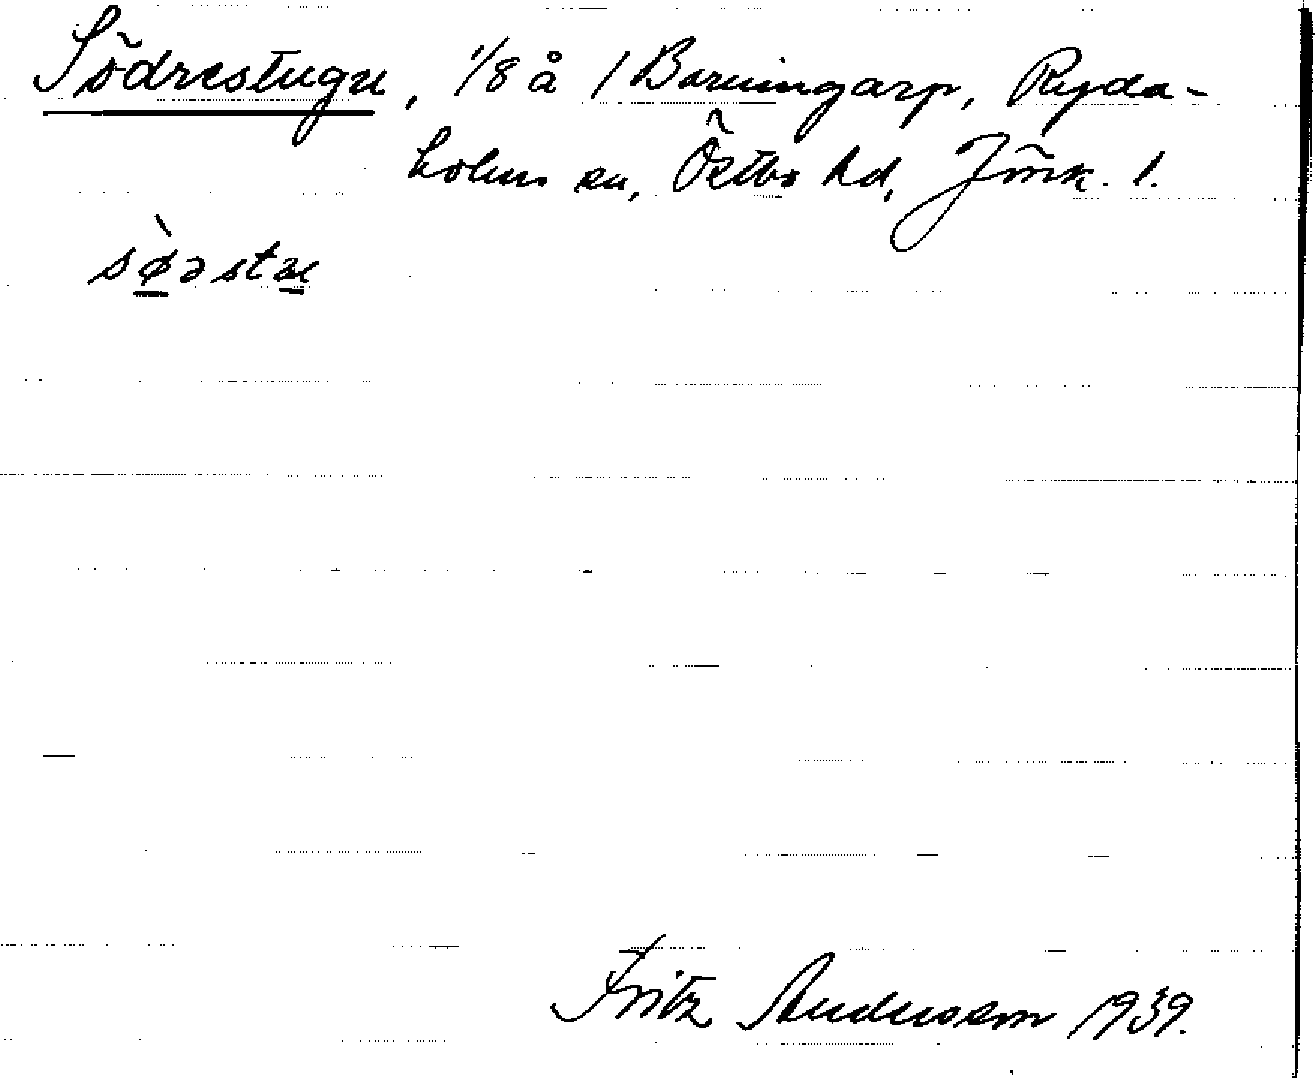 Södrestugu, 1/8 å / Barmingarp, Ryda-
holms sn, Östbo hd, Jönk. l.
sø̀əstæ
Fritz Andersson 1939.